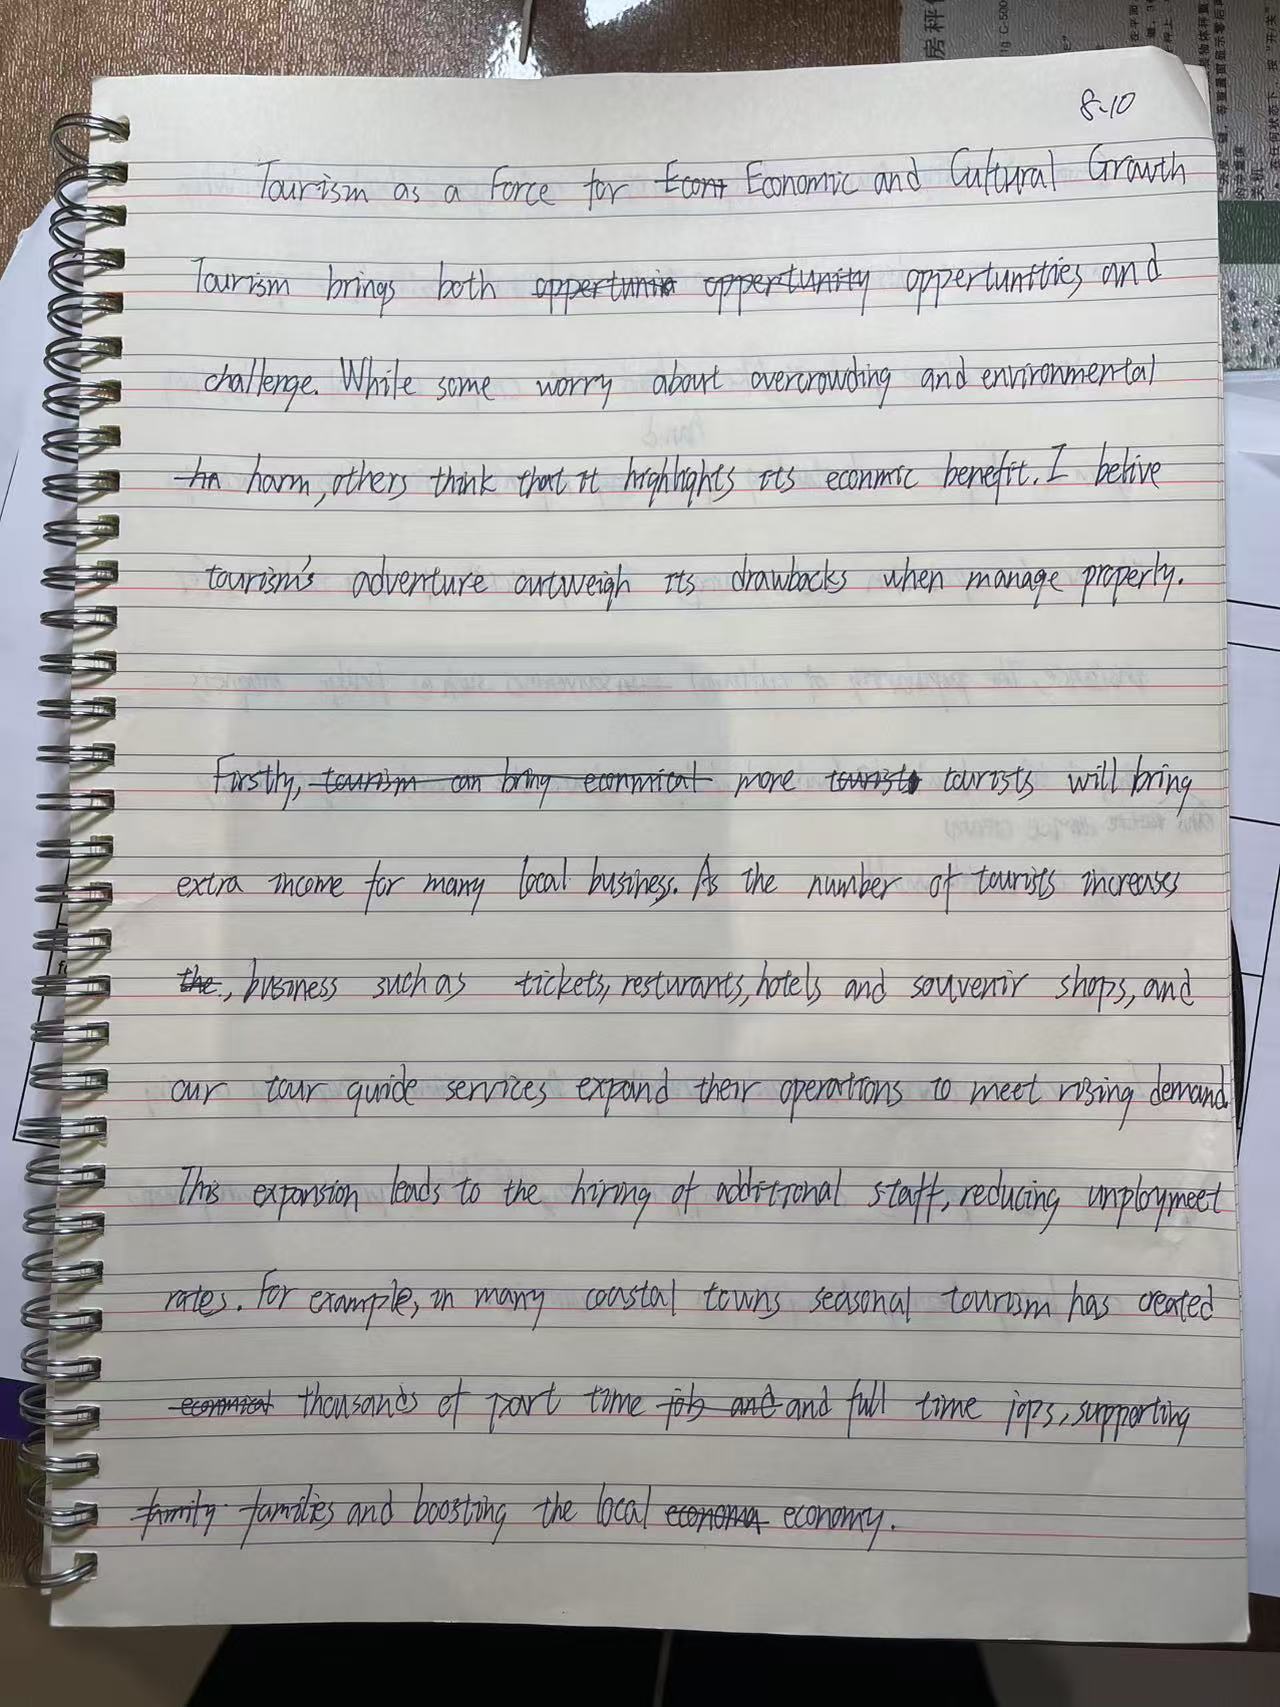 8.10
Tourism as a Force for Econ Economic and Cultural Growth
Tourism brings both oppertunia oppertunity oppertunities and
challenge. While some worry about overcrowding and environmental
ha harm, others think that it highlights its econmic benefit. I belive
tourism's adventure outweigh its drawbacks when manage properly.
Firstly, tourism can bring econmical more tourist tourists will bring
extra income for many local business. As the number of tourists increases
the, business such as tickets, resturants, hotels and souvenir shops, and
our tour guide services expand their operations to meet rising demand.
This expansion leads to the hiring of additional staff, reducing unploymeet
rates. For example, in many coastal towns seasonal tourism has created
economical thousands of part time job and and full time jops, supporting
family families and boosting the local economa economy.